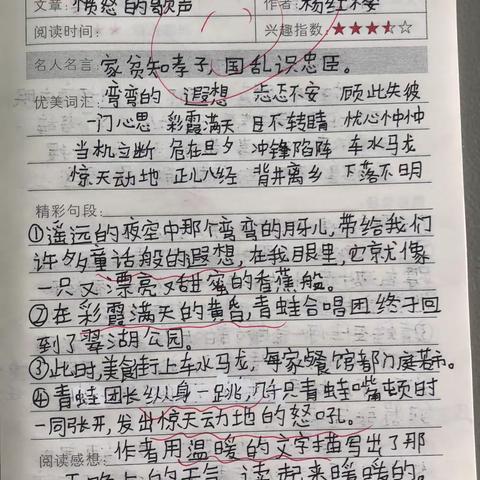 文章: 愤怒的歌声 作者: 杨红樱
阅读时间: 兴趣指数: ★★★★☆
名人名言: 家贫知孝子,国乱识忠臣。
优美词汇: 弯弯的 遐想 忐忑不安 顾此失彼
一门心思 彩霞满天 目不转睛 忧心忡忡
当机立断 危在旦夕 冲锋陷阵 车水马龙
惊天动地 正儿八经 背井离乡 下落不明
精彩句段:
①遥远的夜空中那个弯弯的月牙儿,带给我们
许多童话般的遐想,在我眼里,它就像
一只又漂亮又甜蜜的香蕉船。
②在彩霞满天的黄昏,青蛙合唱团终于回
到了翠湖公园。
③此时,美食街上车水马龙,每家餐馆都门庭若市。
④青蛙团长纵身一跳,几千只青蛙嘴顿时
一同张开,发出惊天动地的怒吼。
阅读感想: 作者用温暖的文字描写出了那
的天气,读起来暖暖的。